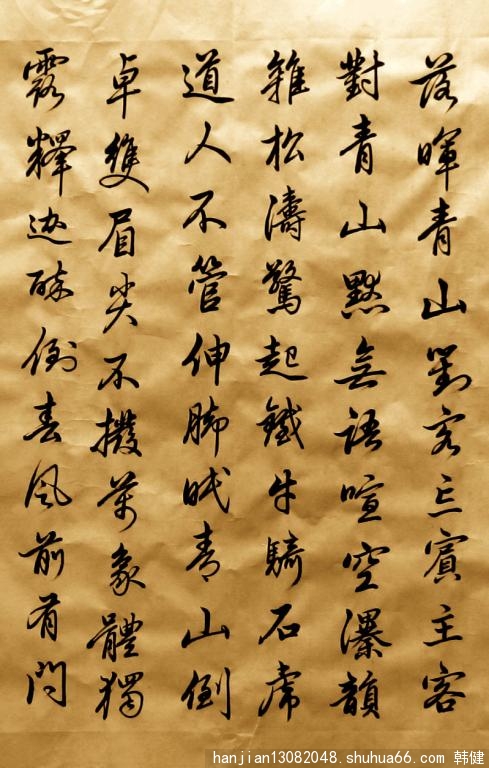 落暉青山對客忘賓主客
對青山默無語喧空瀑韻
雜松濤驚起鐵牛騎石虎
道人不管伸腳眠青山倒
卓雙眉尖不撥萬象體獨
露釋迦醉倒春風前有問
hanjian13082048.shuhua66.com 韩健